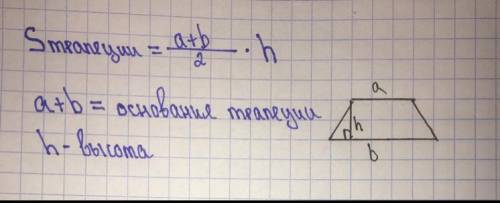 S трапеции = a+b/2 · h
a+b = основания трапеции
h - высота
a
h
b